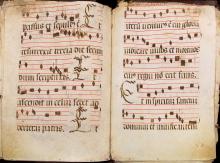 passus et sepultus
resurrexit tercia die secun
dum scripturas
ascendit in celum sedet ad
dexteram patris
venturus est cum gloria
iudicare vivos et mortuos
cuius regni no erit finis
Et in spiritum sanctum
dominum et vivificantem